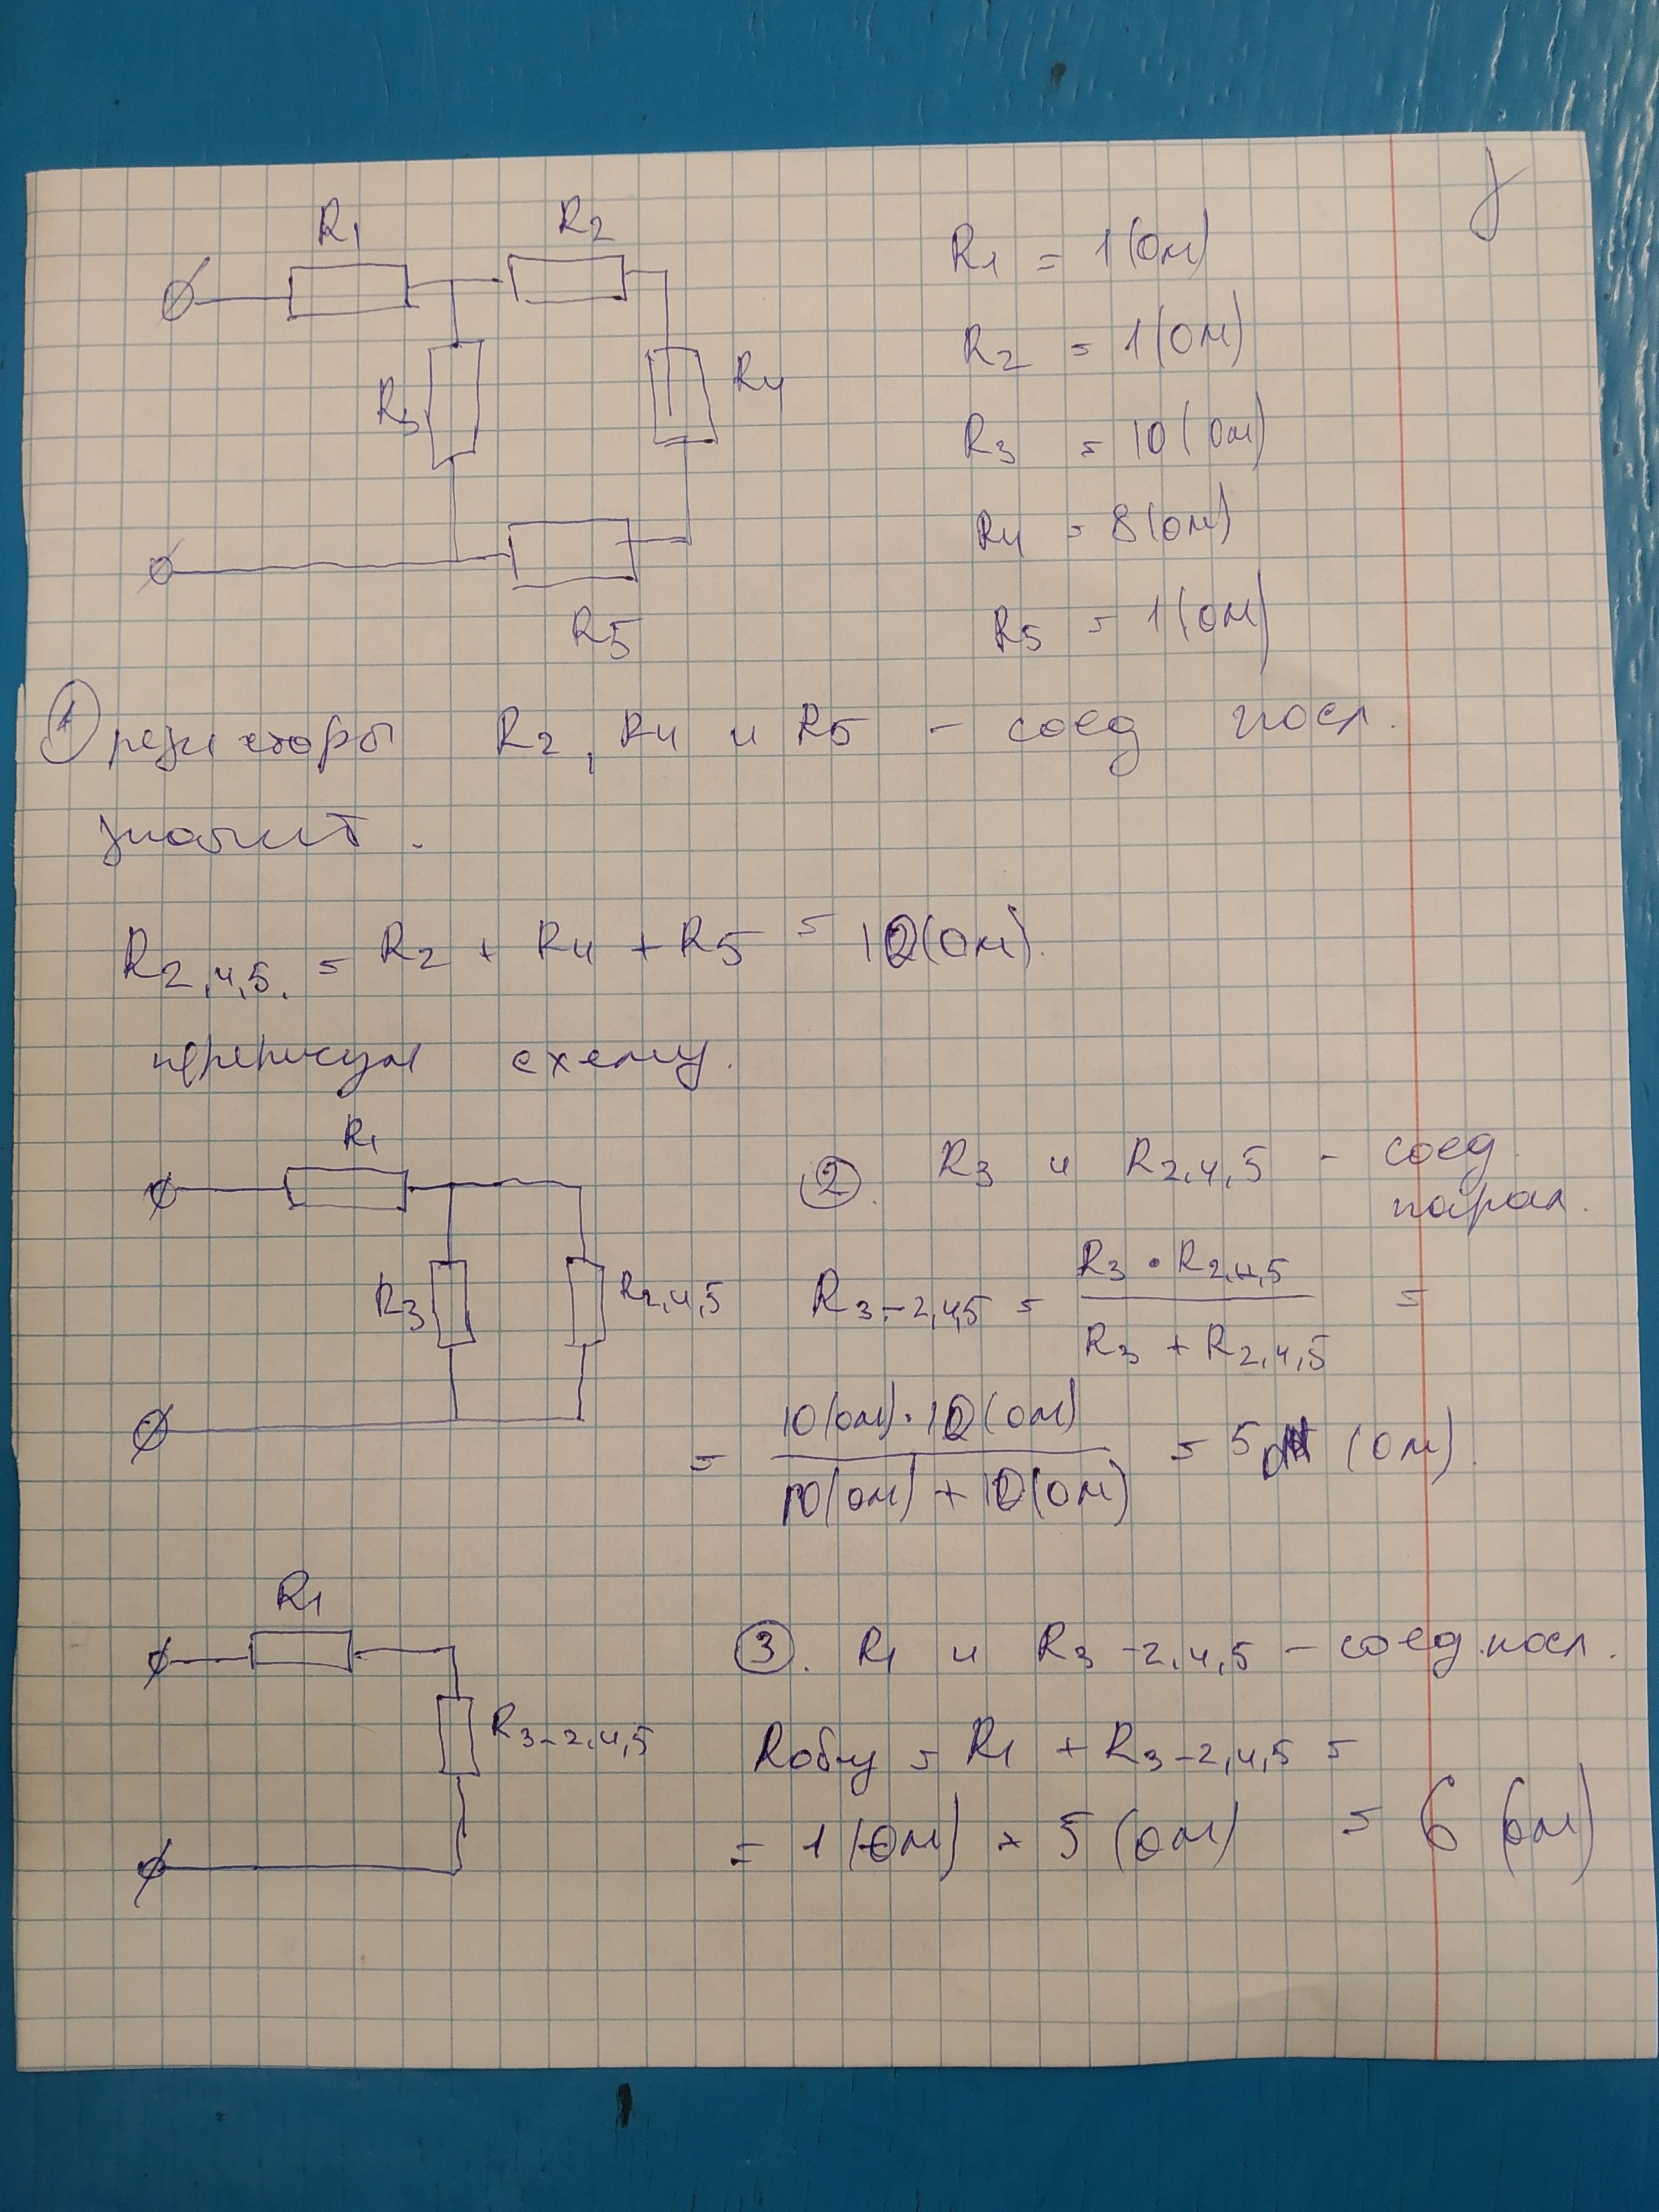 R1 R2
R1 = 1(Ом)
R2 = 1(Ом)
R3 R4
R3 = 10(Ом)
R4 = 8(Ом)
R5
R5 = 1(Ом)
1 резисторы R2, R4 и R5 - соед посл.
значит.
R2,4,5. = R2 + R4 + R5 = 10(Ом).
перерисуем схему.
R1
2. R3 и R2,4,5 - соед.
парал.
R3 R2,4,5
R3-2,4,5 = R3 · R2,4,5 / R3 + R2,4,5 =
= 10(Ом) · 10(Ом) / 10(Ом) + 10(Ом) = 5 (Ом).
R1
3. R1 и R3-2,4,5 - соед. посл.
R3-2,4,5
Rобщ = R1 + R3-2,4,5 =
= 1(Ом) + 5 (Ом) = 6 (Ом)